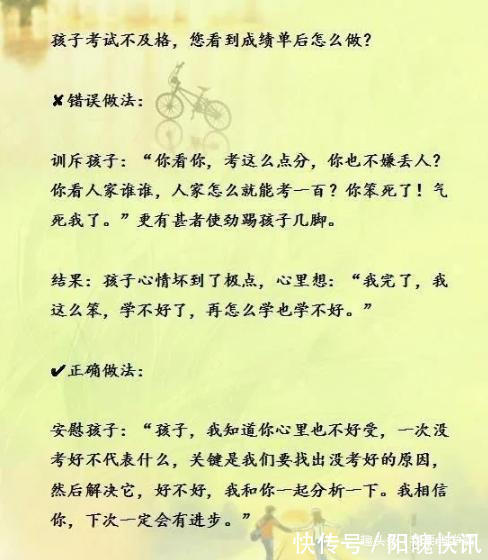 孩子考试不及格，您看到成绩单后怎么做？
✘错误做法：
训斥孩子：“你看你，考这么点分，你也不嫌丢人？
你看人家谁谁，人家怎么就能考一百？你笨死了！气
死我了。”更有甚者使劲踢孩子几脚。
结果：孩子心情坏到了极点，心里想：“我完了，我
这么笨，学不好了，再怎么学也学不好。”
✔正确做法：
安慰孩子：“孩子，我知道你心里也不好受，一次没
考好不代表什么，关键是我们要找出没考好的原因，
然后解决它，好不好，我和你一起分析一下。我相信
你，下次一定会有进步。”
快传号/阳晚快讯